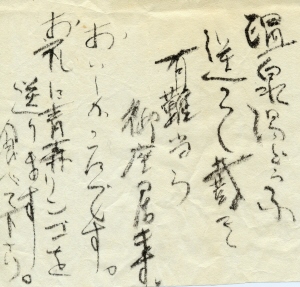 温泉湯どうふ
送って戴き
有難とう
御座居ます。
おいしかったです。
お礼に青森リンゴを
送ります。
食べて下さい。